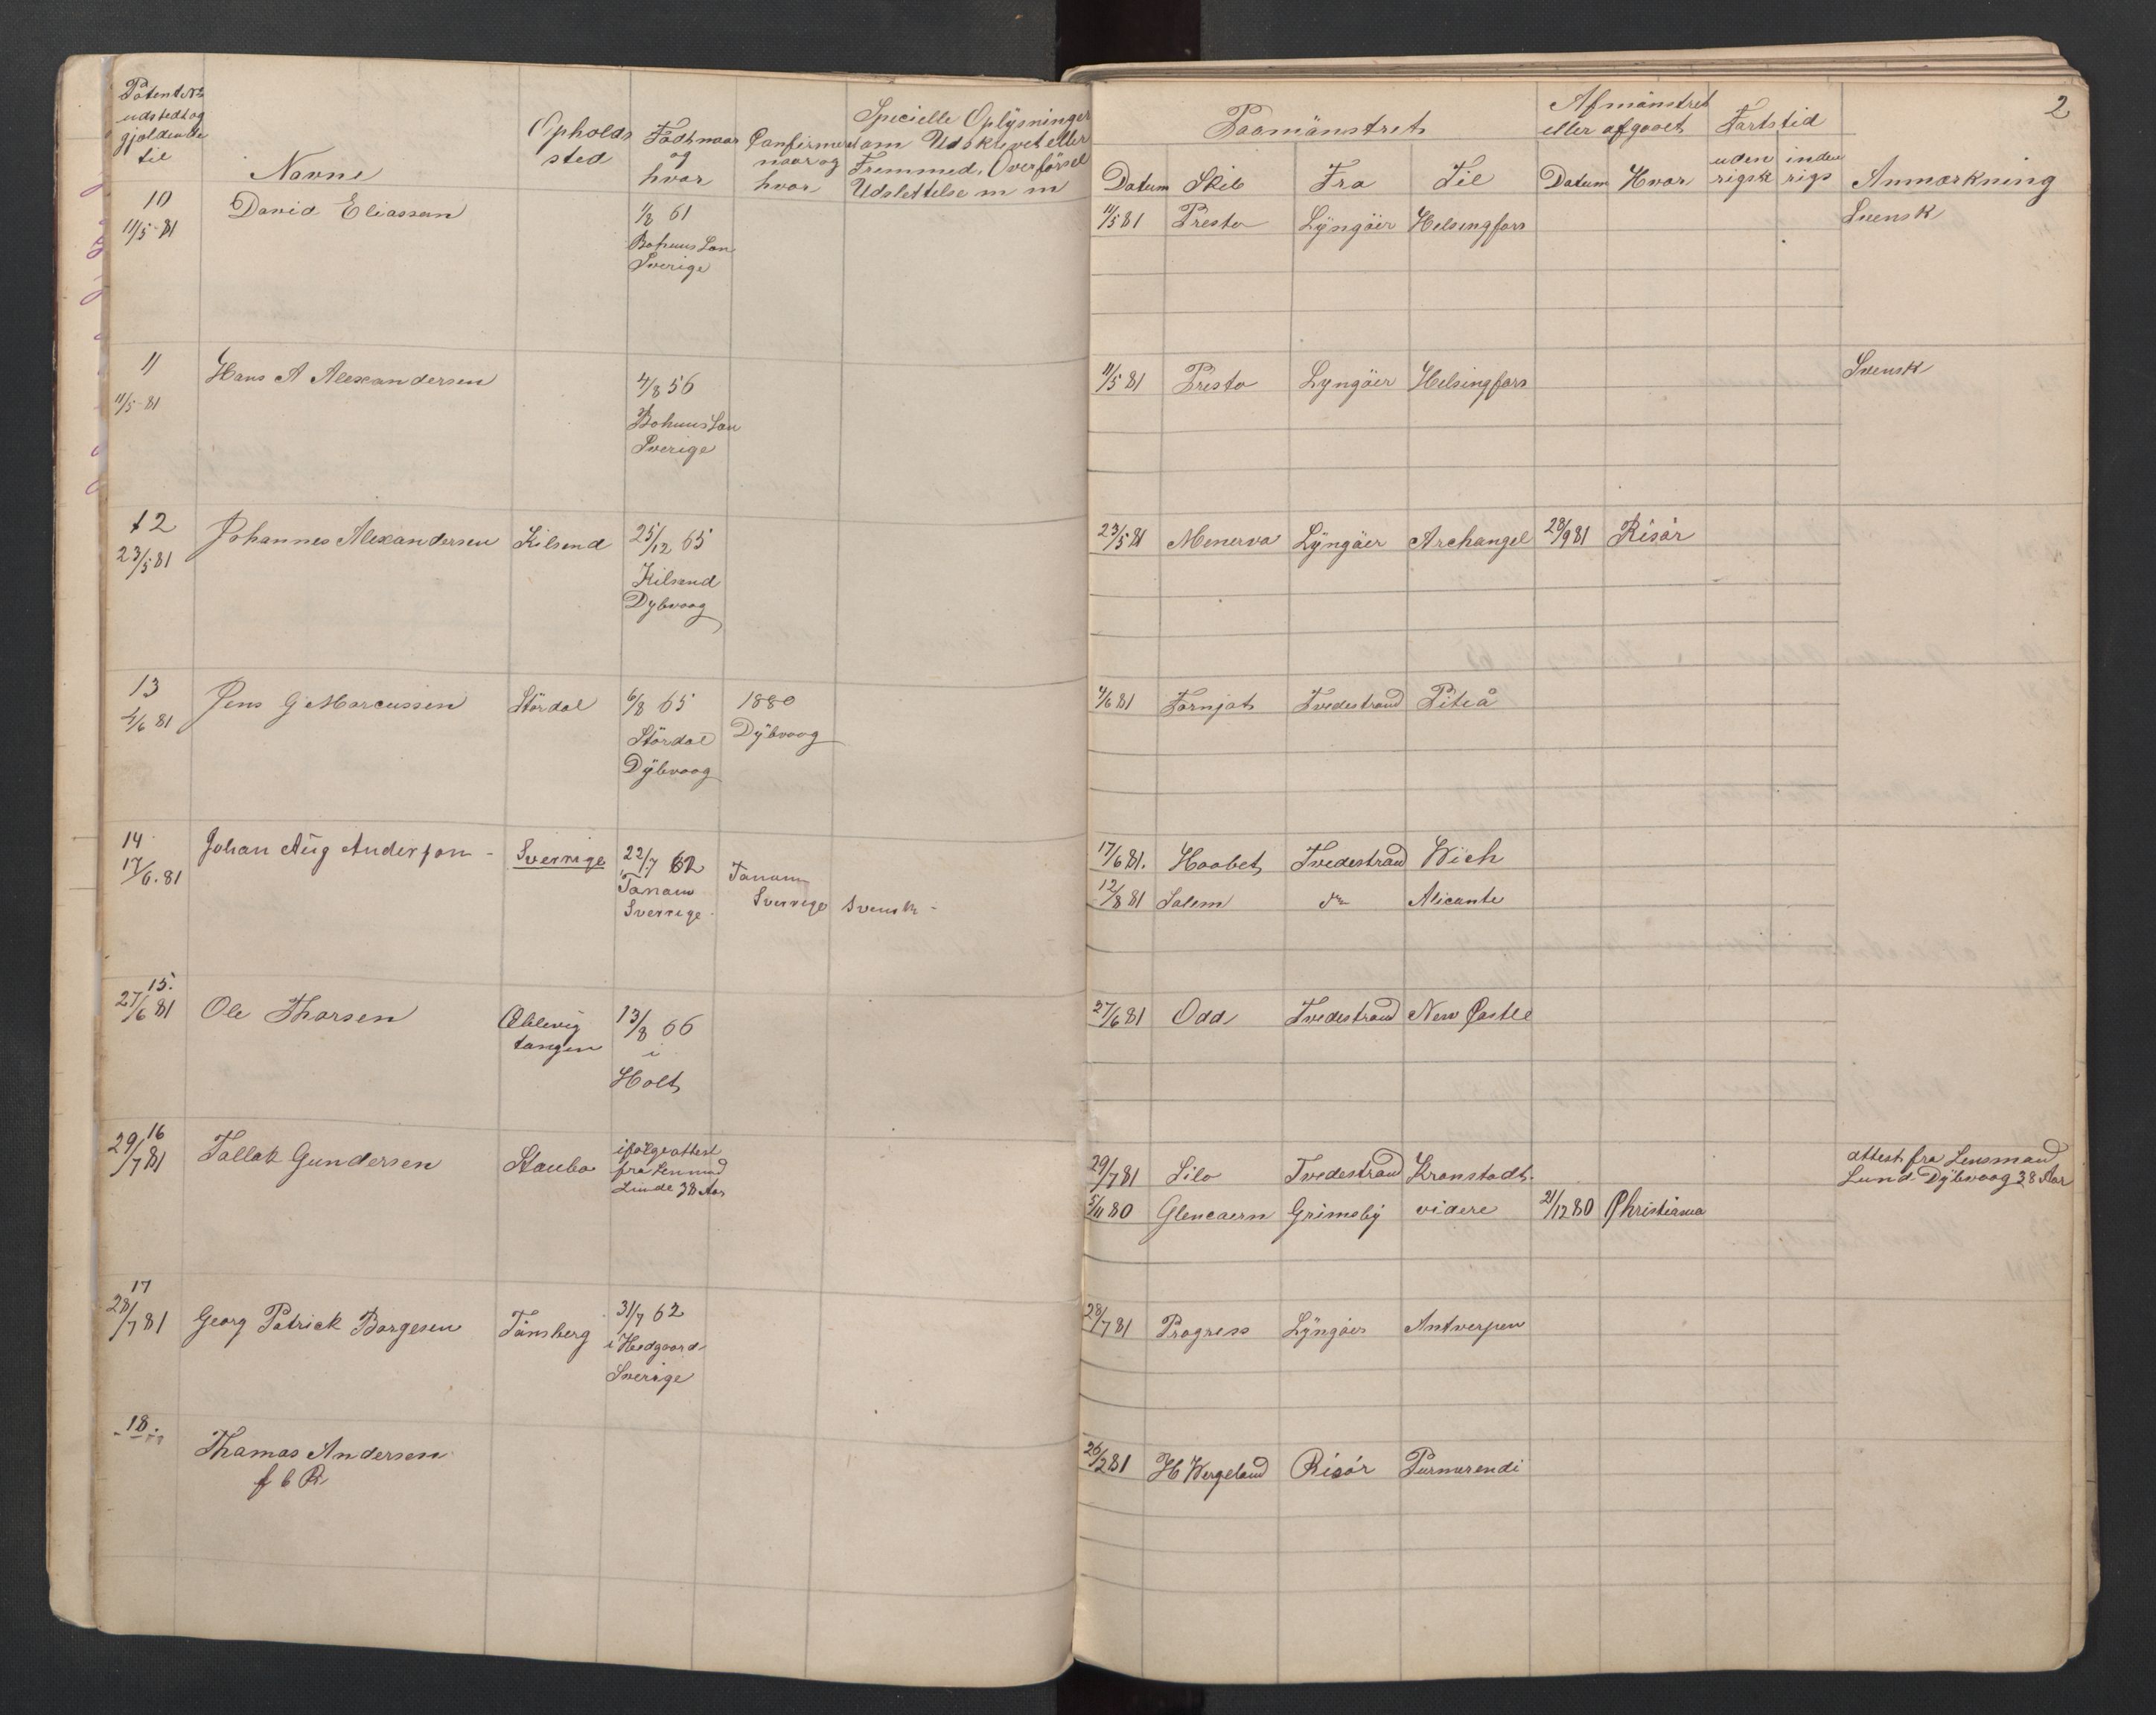 Patent No
udstedt og
gjældende
til
Navne
Opholds
sted
Födt naar
og
hvor
Confirmeret
naar og
hvor
Specielle Oplÿsninger
om Udskrevet eller
Fremmed. Overförsel
Udslettelse m m
Paamönstret
Datum Skib Fra Til
Afmönstret
eller afgaaet
Datum Hvor
Fartstid
uden
rigsk
inden
rigs
Anmærkning
2
10
11/5 81
David Eliassen
1/8 61
Bohuus Län
Sverige
11/5 81 Presto Lÿngöer Helsingfors
Svensk
11
11/5 81
Hans A Alexandersen
4/8 56
Bohuus Län
Sverige
11/5 81 Presto Lyngöer Helsingfors
Svensk
12
23/5 81
Johannes Alexandersen Kilsend 25/12 65
Kilsend
Dybvaag
23/5 81 Menerva Lÿngöer Archangel 28/9 81 Risör
13
4/6 81
Jens G Marcussen Stördal 6/8 65 1880
Stördal Dÿbvaag
Dÿbvaag
4/6 81 Fornjot Tvedestrand Piteå
14
17/6. 81
Johan Aug Anderson - Sverrige 22/7 62
Tanum
Sverrige
Tanum
Sverrige Svensk -
17/6 81. Haabet Tvedestrand Wich
12/8 81 Salem do Alicante
15.
27/6 81
Ole Thorsen
tangen
13/8 66
i
Holt
27/6 81 Odd Tvedestrand New Castle
16
29/7 81
Tallak Gundersen Staubo
ifölge attest
fra Lensmd
Linde 38 Aar
29/7 81 Silo Tvedestrand Kronstadt.
5/11 80 Glencaern Grimsbÿ videre 21/12 80 Christiania
attest fra Lensmand
Lund Dÿbvaag 38 Aar
17
28/7 81
Georg Patrick Borgesen Tönsberg
31/7 62
i Hedgaard
Sverige
28/7 81 Progress Lÿngöer Antwerpen
18
Thomas Andersen
f 6 R
26/2 81 H Wergeland Risör Purmerendi